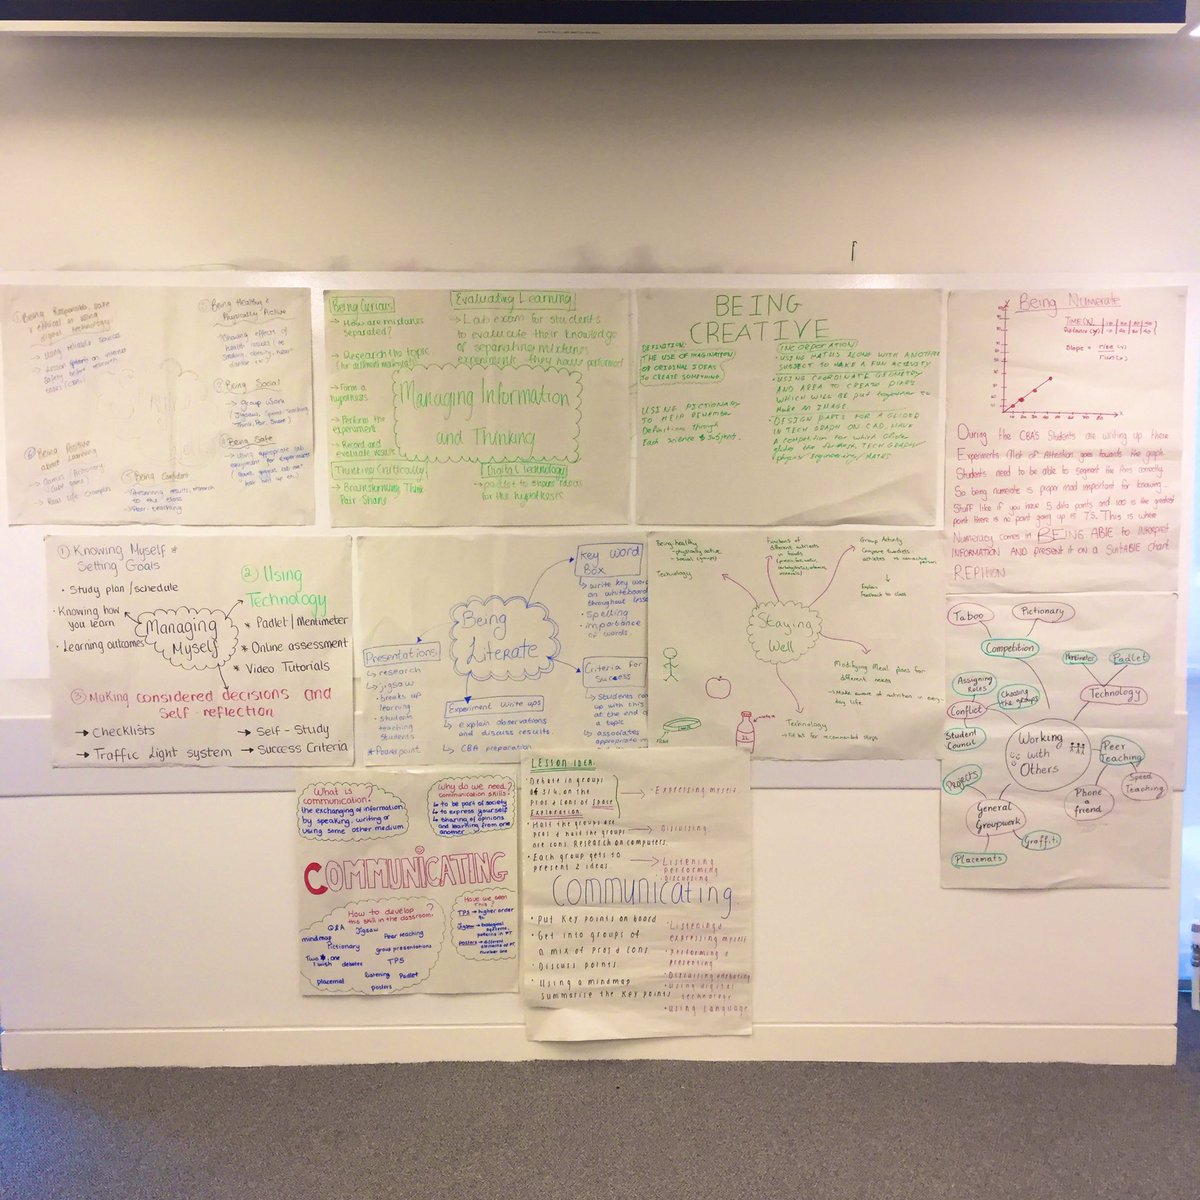 Being Responsible, safe
& ethical in using
digital technology
→ Using reliable sources
① Being Healthy &
Physically Active
② Being Social
→ Group work
④ Being Safe
Being Positive
about Learning
→ Real life examples
Being Confident
→ Peer-teaching
Being Curious
→ How are mixtures
separated?
→ Research the topic
→ Form a
hypothesis
→ Perform the
experiment
→ Record and
evaluate results
Evaluating Learning
→ Lab exam for students
to evaluate their knowledge
of separating mixtures
experiments they have performed
Managing Information
and Thinking
Thinking Critically
→ Brainstorming, Think
Pair Share
Digital Technology
→ padlet to share ideas
for the hypothesis
BEING
CREATIVE
DEFINITION:
THE USE OF IMAGINATION
OR ORIGINAL IDEAS
TO CREATE SOMETHING
USING PICTIONARY
TO HELP REMEMBER
Definitions through
Each science & subject.
INCORPORATION
• USING MATHS ALONG WITH ANOTHER
SUBJECT TO MAKE A FUN ACTIVITY
• USING COORDINATE GEOMETRY
AND AREA TO CREATE
WHICH WILL BE put together TO
Make an IMAGE
• DESIGN PARTS FOR A GLIDER
IN TECH GRAPH ON CAD, HAVE
A competition for which glider
glides the furthest, TECH GRAPH/
physics/engineering/MATHS
Being Numerate
Slope =
During the CBA'S Students are writing up there
Experiments. Alot of Attention goes towards the graph.
Students need to be able to segment the Axis correctly.
So being numerate is proper mad important for knowing...
Stuff like if you have 5 data points and 105 is the greatest
point there is no point going up is 7'S. This is where
Numeracy comes in BEING ABLE to INTERPRET
INFORMATION AND PRESENT IT ON A SUITABLE CHART
① Knowing Myself *
Setting Goals
• Study plan /schedule
• Knowing how
you learn
• Learning outcomes
Managing
Myself
② Using
Technology
* Padlet/Mentimeter
* Online assessment
* Video Tutorials
③ Making considered decisions and
self-reflection
→ Checklists
→ Traffic light system
→ Self-Study
→ Success Criteria
Being
Literate
Key Word
Box
→ write key word
on whiteboard
throughout
→ Spelling
→ importance
of words
Presentations
→ research
→ jigsaw
• breaks up
learning
• students
teaching
students
* Powerpoint
Experiment Write ups
↳ explain observations
and discuss results.
↳ CBA preparation
Criteria for
Success
↳ Students
up with this
at the end of
a topic
↳ associates
appropriate
Being healthy
- physically active
- social (groups)
Technology
Functions of
different nutrients
in foods
Group Activity
Staying
Well
Explain
Feedback to class
Modifying Meal plans for
different needs
- Make aware of nutrition in every
day life.
Technology
Taboo
Pictionary
Competition
Mentimeter
Padlet
Technology
Assigning
Roles
Choosing
the groups
Conflict
Student
Council
Working
with
Others
Peer
Teaching
Speed
Teaching
Phone
a
friend
Projects
General
Groupwork
Graffiti
Placemats
What is
communication?
the exchanging of information
by speaking, writing or
using some other medium
Why do we need
communication skills?
↳ to be part of society
↳ to express yourself
↳ sharing of opinions
and learning from one
another
COMMUNICATING
How to develop
this skill in the classroom?
Q&A
Jigsaw
Peer teaching
mindmap
Pictionary
group presentations
Two *, one
I wish
debates
TPS
placemat
listening
Padlet
posters
Have we seen
this?
TPS → higher order
Jigsaw → biological
systems,
patterns in PT
Posters → different
elements of PT
number one
LESSON IDEA:
• Debate in groups
of 3/4, on the
pros & cons of space
Exploration.
→ Expressing myself
• Half the groups are
pros & half the groups
are cons. Research on computers.
→ Discussing.
• Each group gets to
present 2 ideas.
→ Listening
performing
discussing
Communicating
• Put Key points on board
• Get into groups of
a mix of pros & cons
• Discuss points.
• Using a mindmap
summarise the Key points
• Listening &
expressing myself
• Performing &
presenting
• Discussing debating
• Using digital
technology
• Using Language